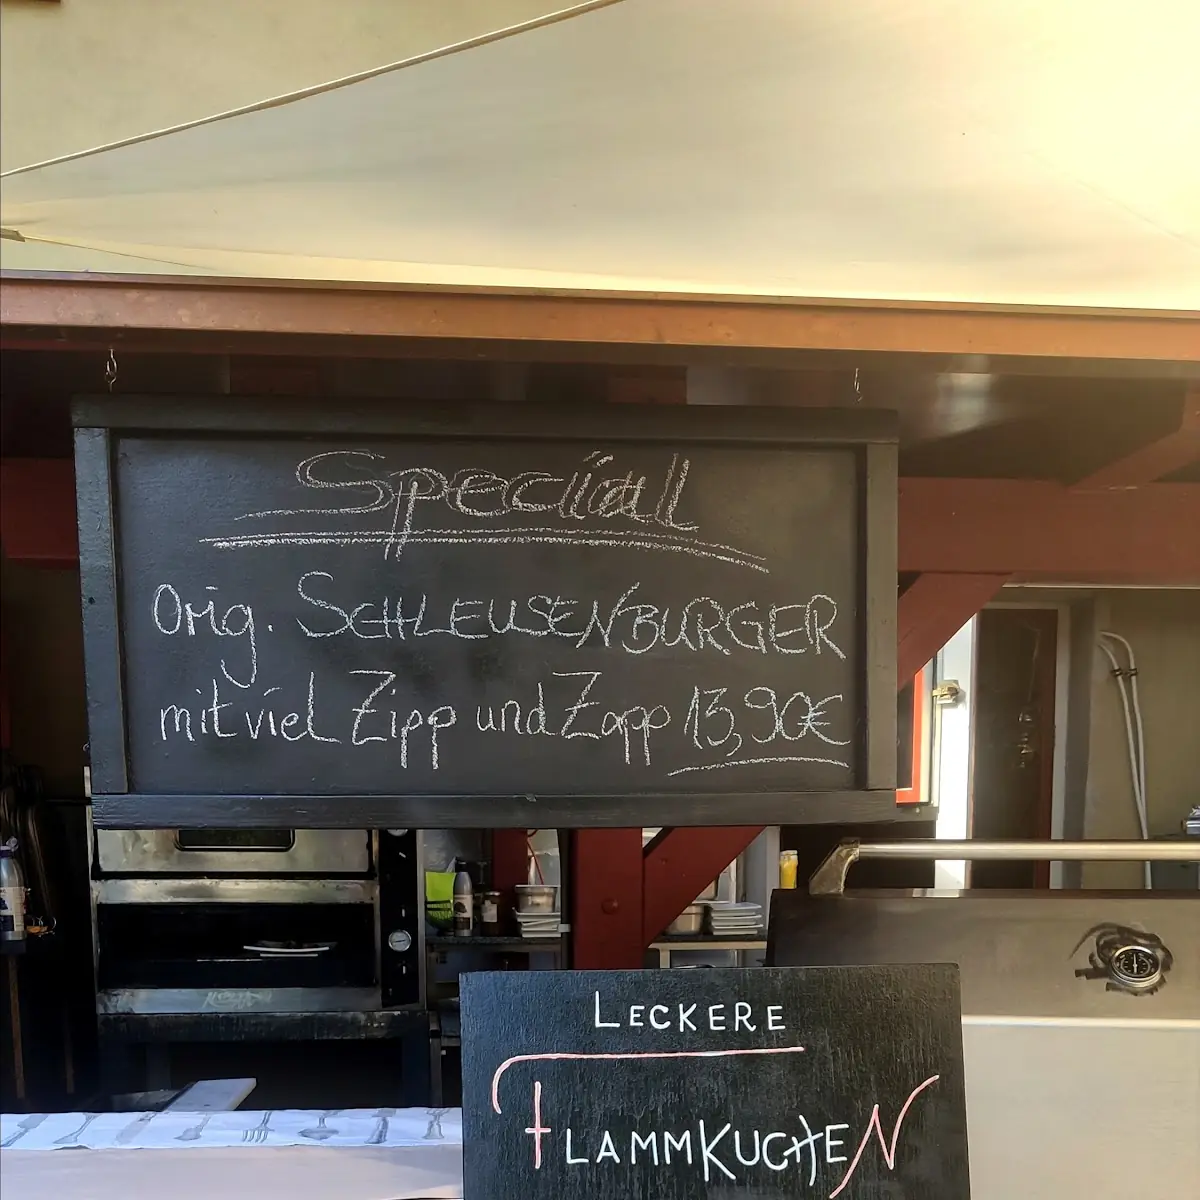 Speciiall
Orig. SCHLEUSENBURGER
mit viel Zipp und Zapp 13,90€
LECKERE
FLAMMKUCHEN